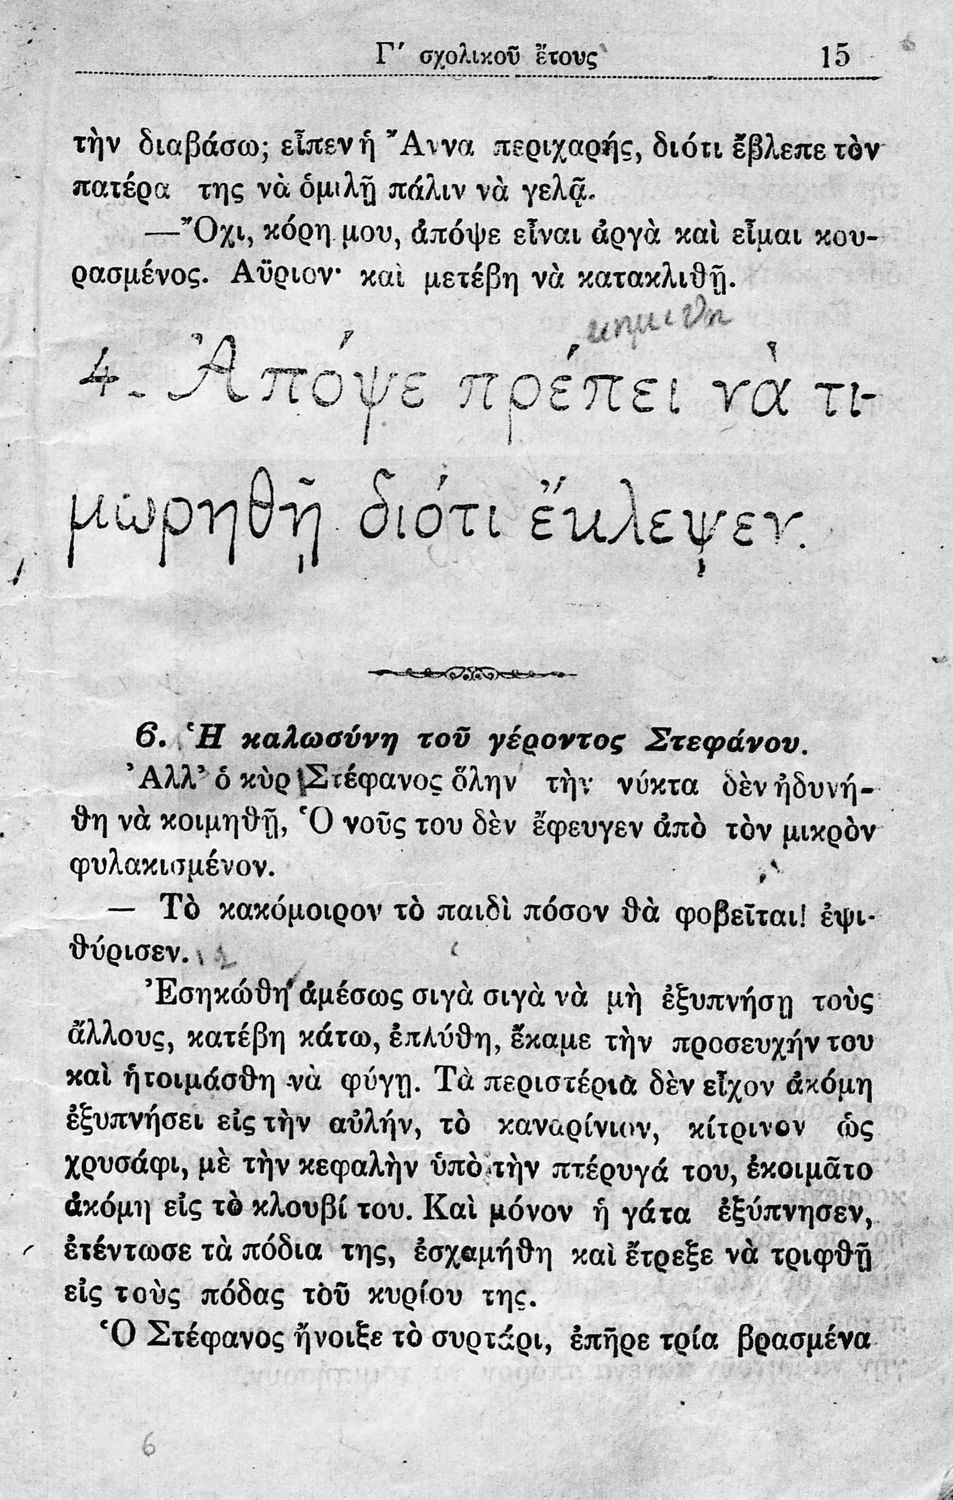 Γ′ σχολικοῦ ἔτους 15
τὴν διαβάσω; εἶπεν ἡ Ἄννα περιχαρής, διότι ἔβλεπε τὸν
πατέρα της νὰ ὁμιλῇ πάλιν νὰ γελᾷ.
—Ὄχι, κόρη μου, ἀπόψε εἶναι ἀργὰ καὶ εἶμαι κου-
ρασμένος. Αὔριον· καὶ μετέβη νὰ κατακλιθῇ.
4. Ἀπόψε πρέπει νὰ τι-
μωρηθῇ διότι ἔκλεψεν.
6. Ἡ καλωσύνη τοῦ γέροντος Στεφάνου.
Ἀλλ’ ὁ κὺρ Στέφανος ὅλην τὴν νύκτα δὲν ἠδυνή-
θη νὰ κοιμηθῇ, Ὁ νοῦς του δὲν ἔφευγεν ἀπὸ τὸν μικρὸν
φυλακισμένον.
— Τὸ κακόμοιρον τὸ παιδὶ πόσον θὰ φοβεῖται! ἐψι-
θύρισεν.
Ἐσηκώθη ἀμέσως σιγὰ σιγὰ νὰ μὴ ἐξυπνήσῃ τοὺς
ἄλλους, κατέβη κάτω, ἐπλύθη, ἔκαμε τὴν προσευχήν του
καὶ ἡτοιμάσθη νὰ φύγῃ. Τὰ περιστέρια δὲν εἶχον ἀκόμη
ἐξυπνήσει εἰς τὴν αὐλήν, τὸ καναρίνιον, κίτρινον ὡς
χρυσάφι, μὲ τὴν κεφαλὴν ὑπὸ τὴν πτέρυγά του, ἐκοιμᾶτο
ἀκόμη εἰς τὸ κλουβί του. Καὶ μόνον ἡ γάτα ἐξύπνησεν,
ἐτέντωσε τὰ πόδια της, ἐσχαμήθη καὶ ἔτρεξε νὰ τριφθῇ
εἰς τοὺς πόδας τοῦ κυρίου της.
Ὁ Στέφανος ἤνοιξε τὸ συρτάρι, ἐπῆρε τρία βρασμένα
6